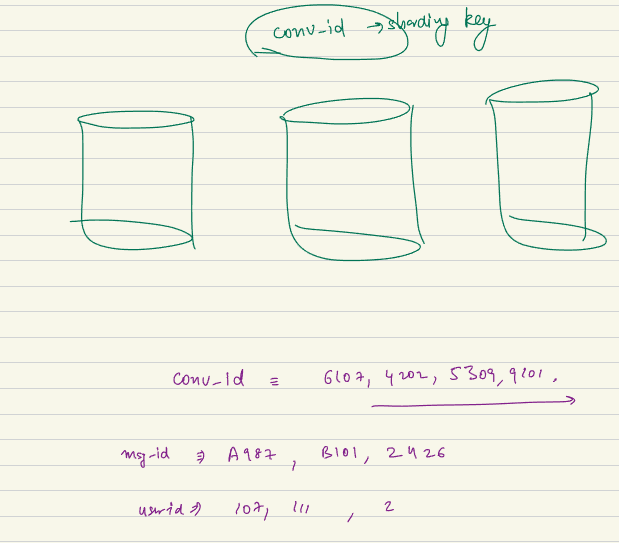 conv-id → sharding key
Conv-Id = 6107, 4202, 5309, 9201.
msg-id ⇒ A987, B101, 2426
userid ⇒ 107, 111, 2